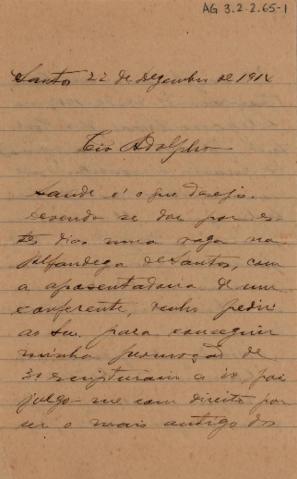 AG 3.2-2.65-1
Santos 22 de Dezembro de 1914
Tio Adolpho
Saude é o que desejo.
Devendo se dar por es
tes dias uma vaga na
Alfandega de Santos, com
a aposentadoria de um
conferente, venho pedir
ao Snr. para conseguir
minha promoção de
3º escripturario a 2º, pois
julgo-me com direito por
ser o mais antigo dos